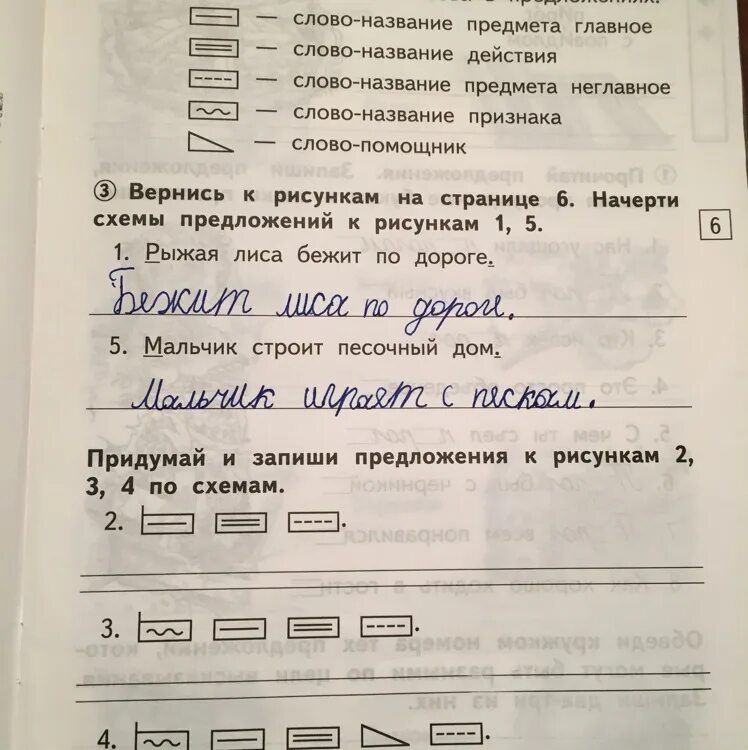 — слово-название предмета главное
— слово-название действия
— слово-название предмета неглавное
— слово-название признака
— слово-помощник
③ Вернись к рисункам на странице 6. Начерти
схемы предложений к рисункам 1, 5.
6
1. Рыжая лиса бежит по дороге.
Бежит лиса по дороге.
5. Мальчик строит песочный дом.
Мальчик играет с песком.
Придумай и запиши предложения к рисункам 2,
3, 4 по схемам.
2.
3.
4.